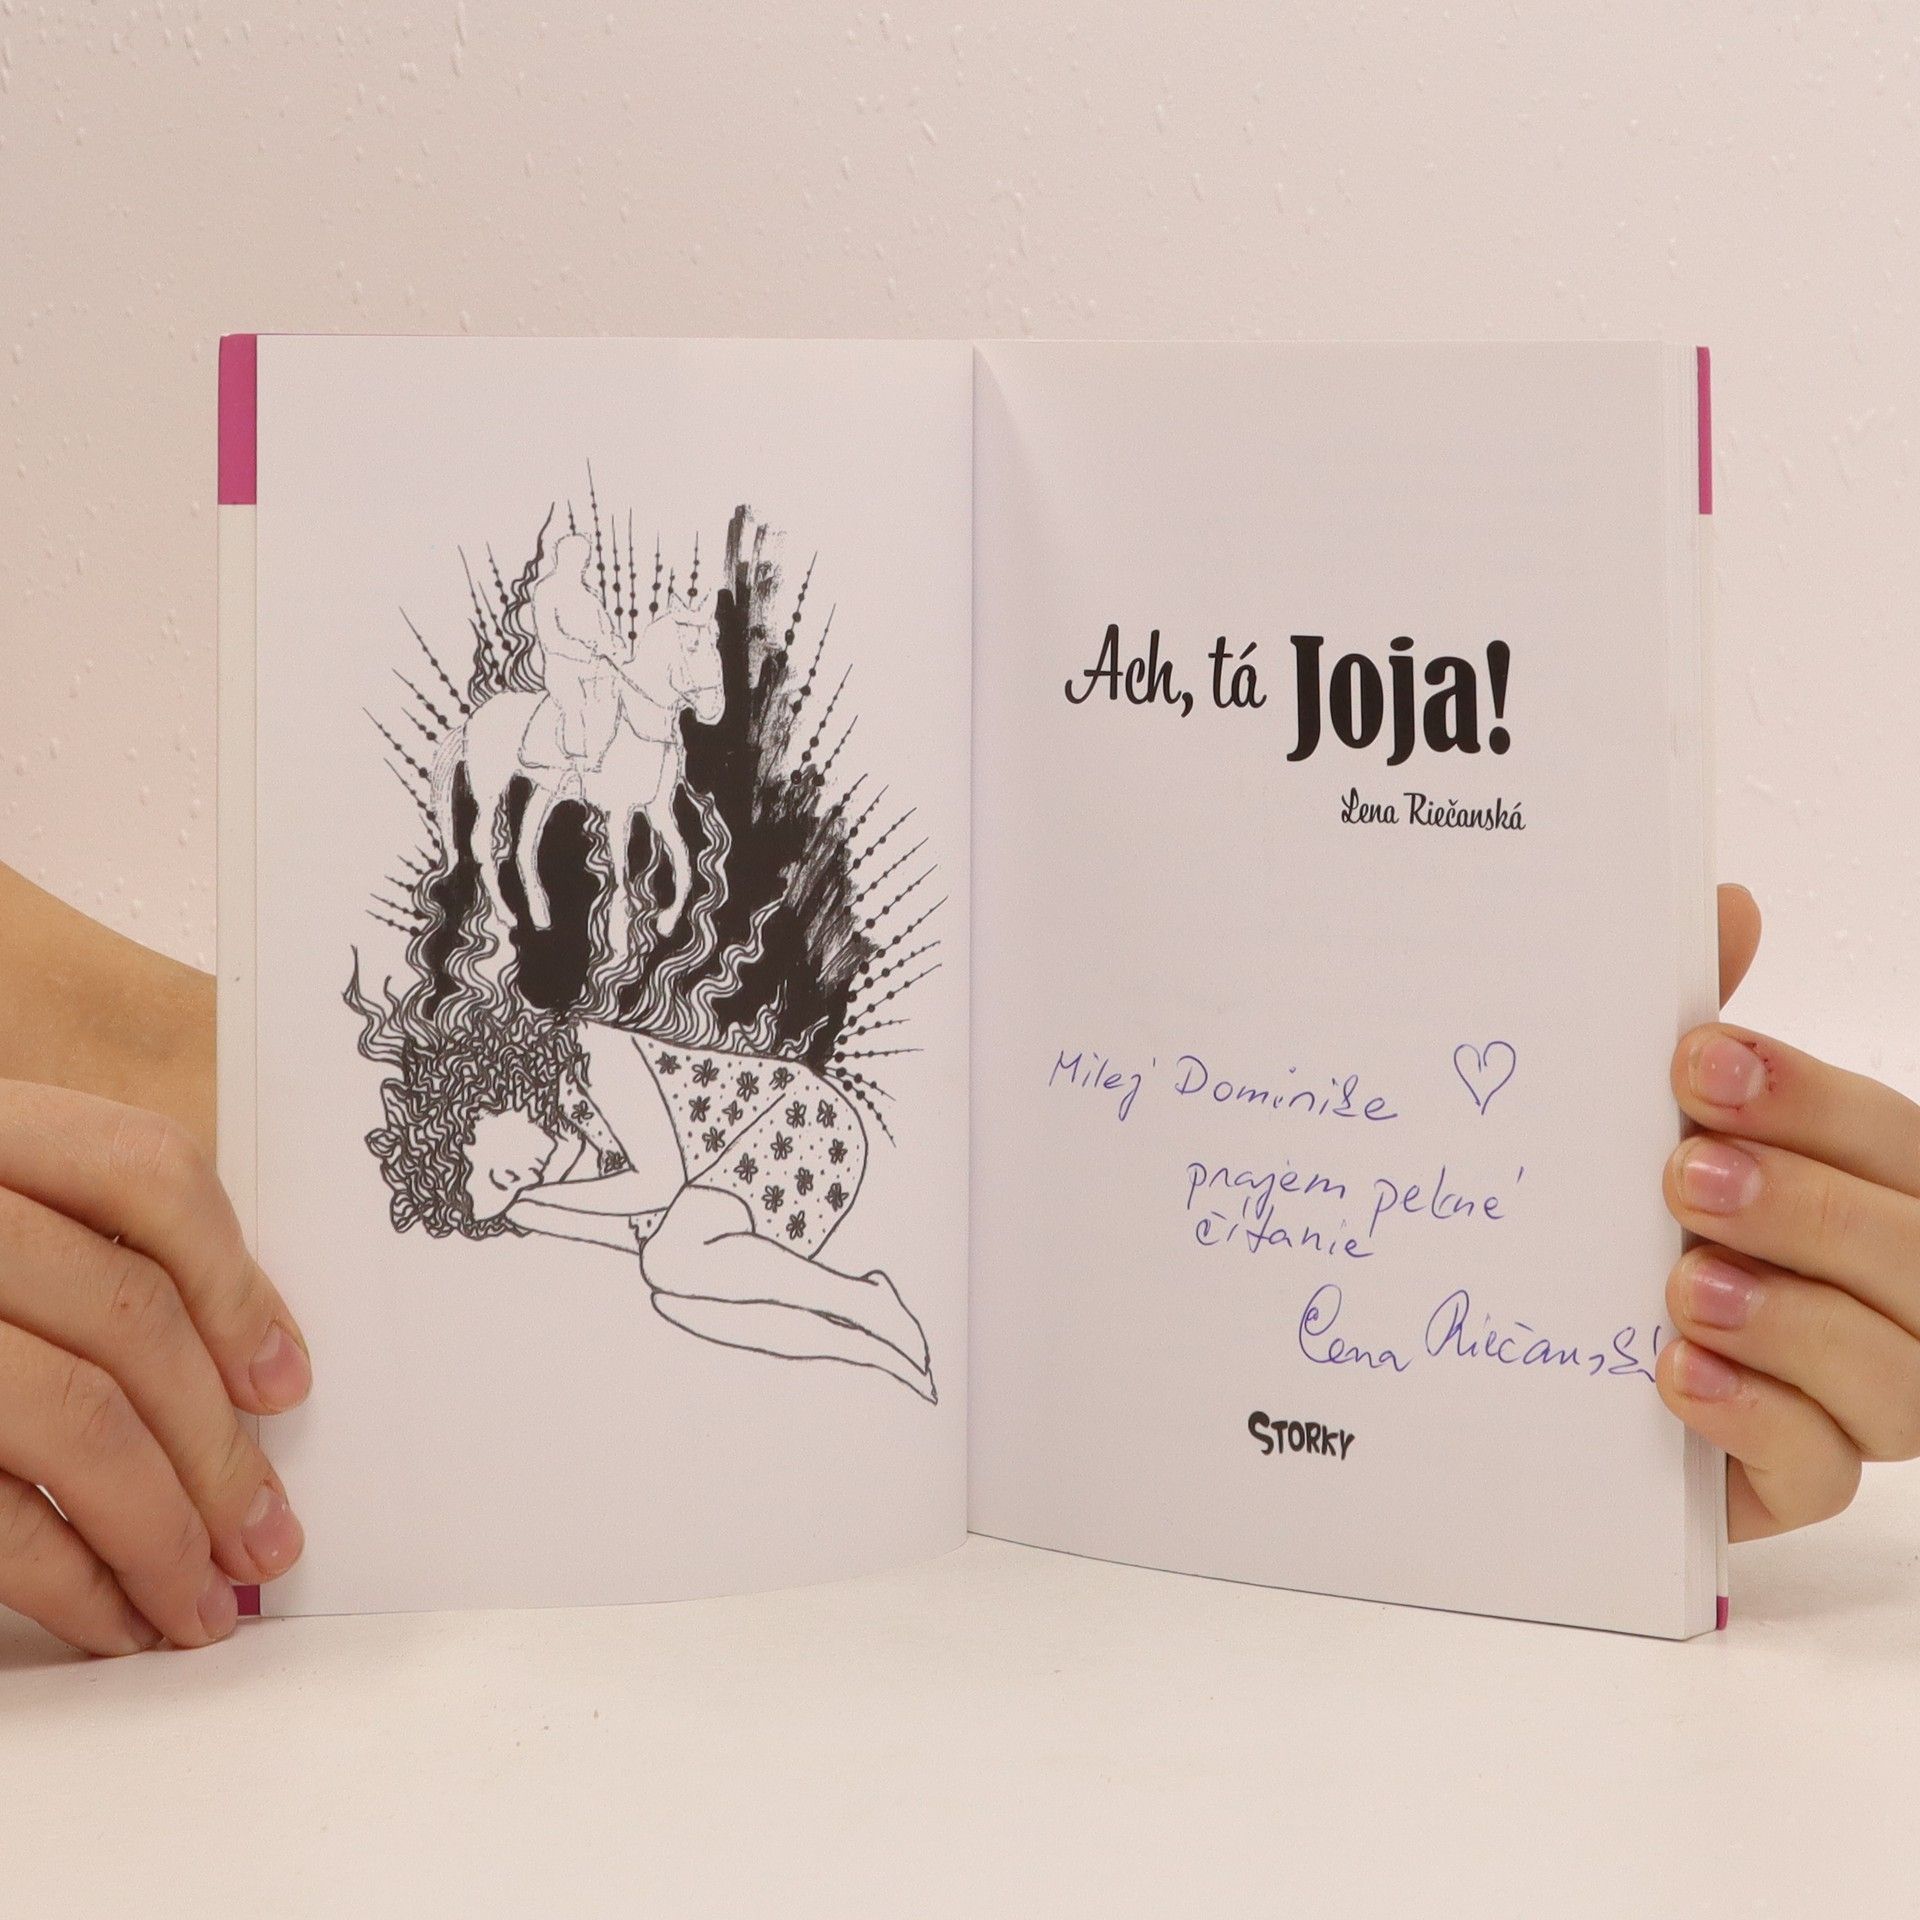 Ach, tá Joja!
Lena Riečanská
Milej Dominike ♡
prajem pekné
čítanie
Lena Riečanská
STORKY